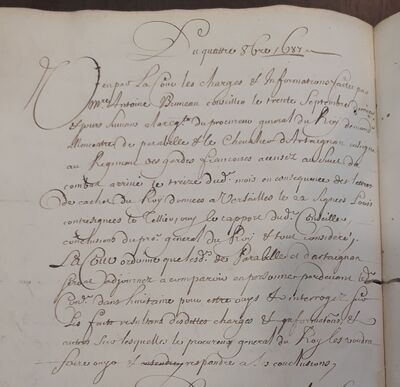 Du quattre 8bre 1687
Veu par La Cour les charges et Informations faites par
Mre Antoine Bruneau conseiller le trente Septembre dernier
et jours suivans a la reqte du procureur general du Roy demandr
allencontre de parabelle et le Chevalier d'Artaignan enseigne
au Regiment des gardes francoises accusez au suiet du
combat arrivé le treize dud. mois en consequence des lettres
de cachet du Roy données a Versailles le 22 signées Louis
contresignées le Tellier ouy le rapport dud. conseiller
conclusions du pr general du Roy et tout considéré,
La Cour ordonne que lesd. de Parabelle et d'artaignan
seront adjournez a comparoir en personnes pardevant led.
Con.er dans huitaine pour estre ouys et interrogez sur
Les faits resultans desdittes charges et informaõns, et
autres sur lesquelles le procureur general du Roy les voudra
faire ouyr et respondre a ses conclusions,